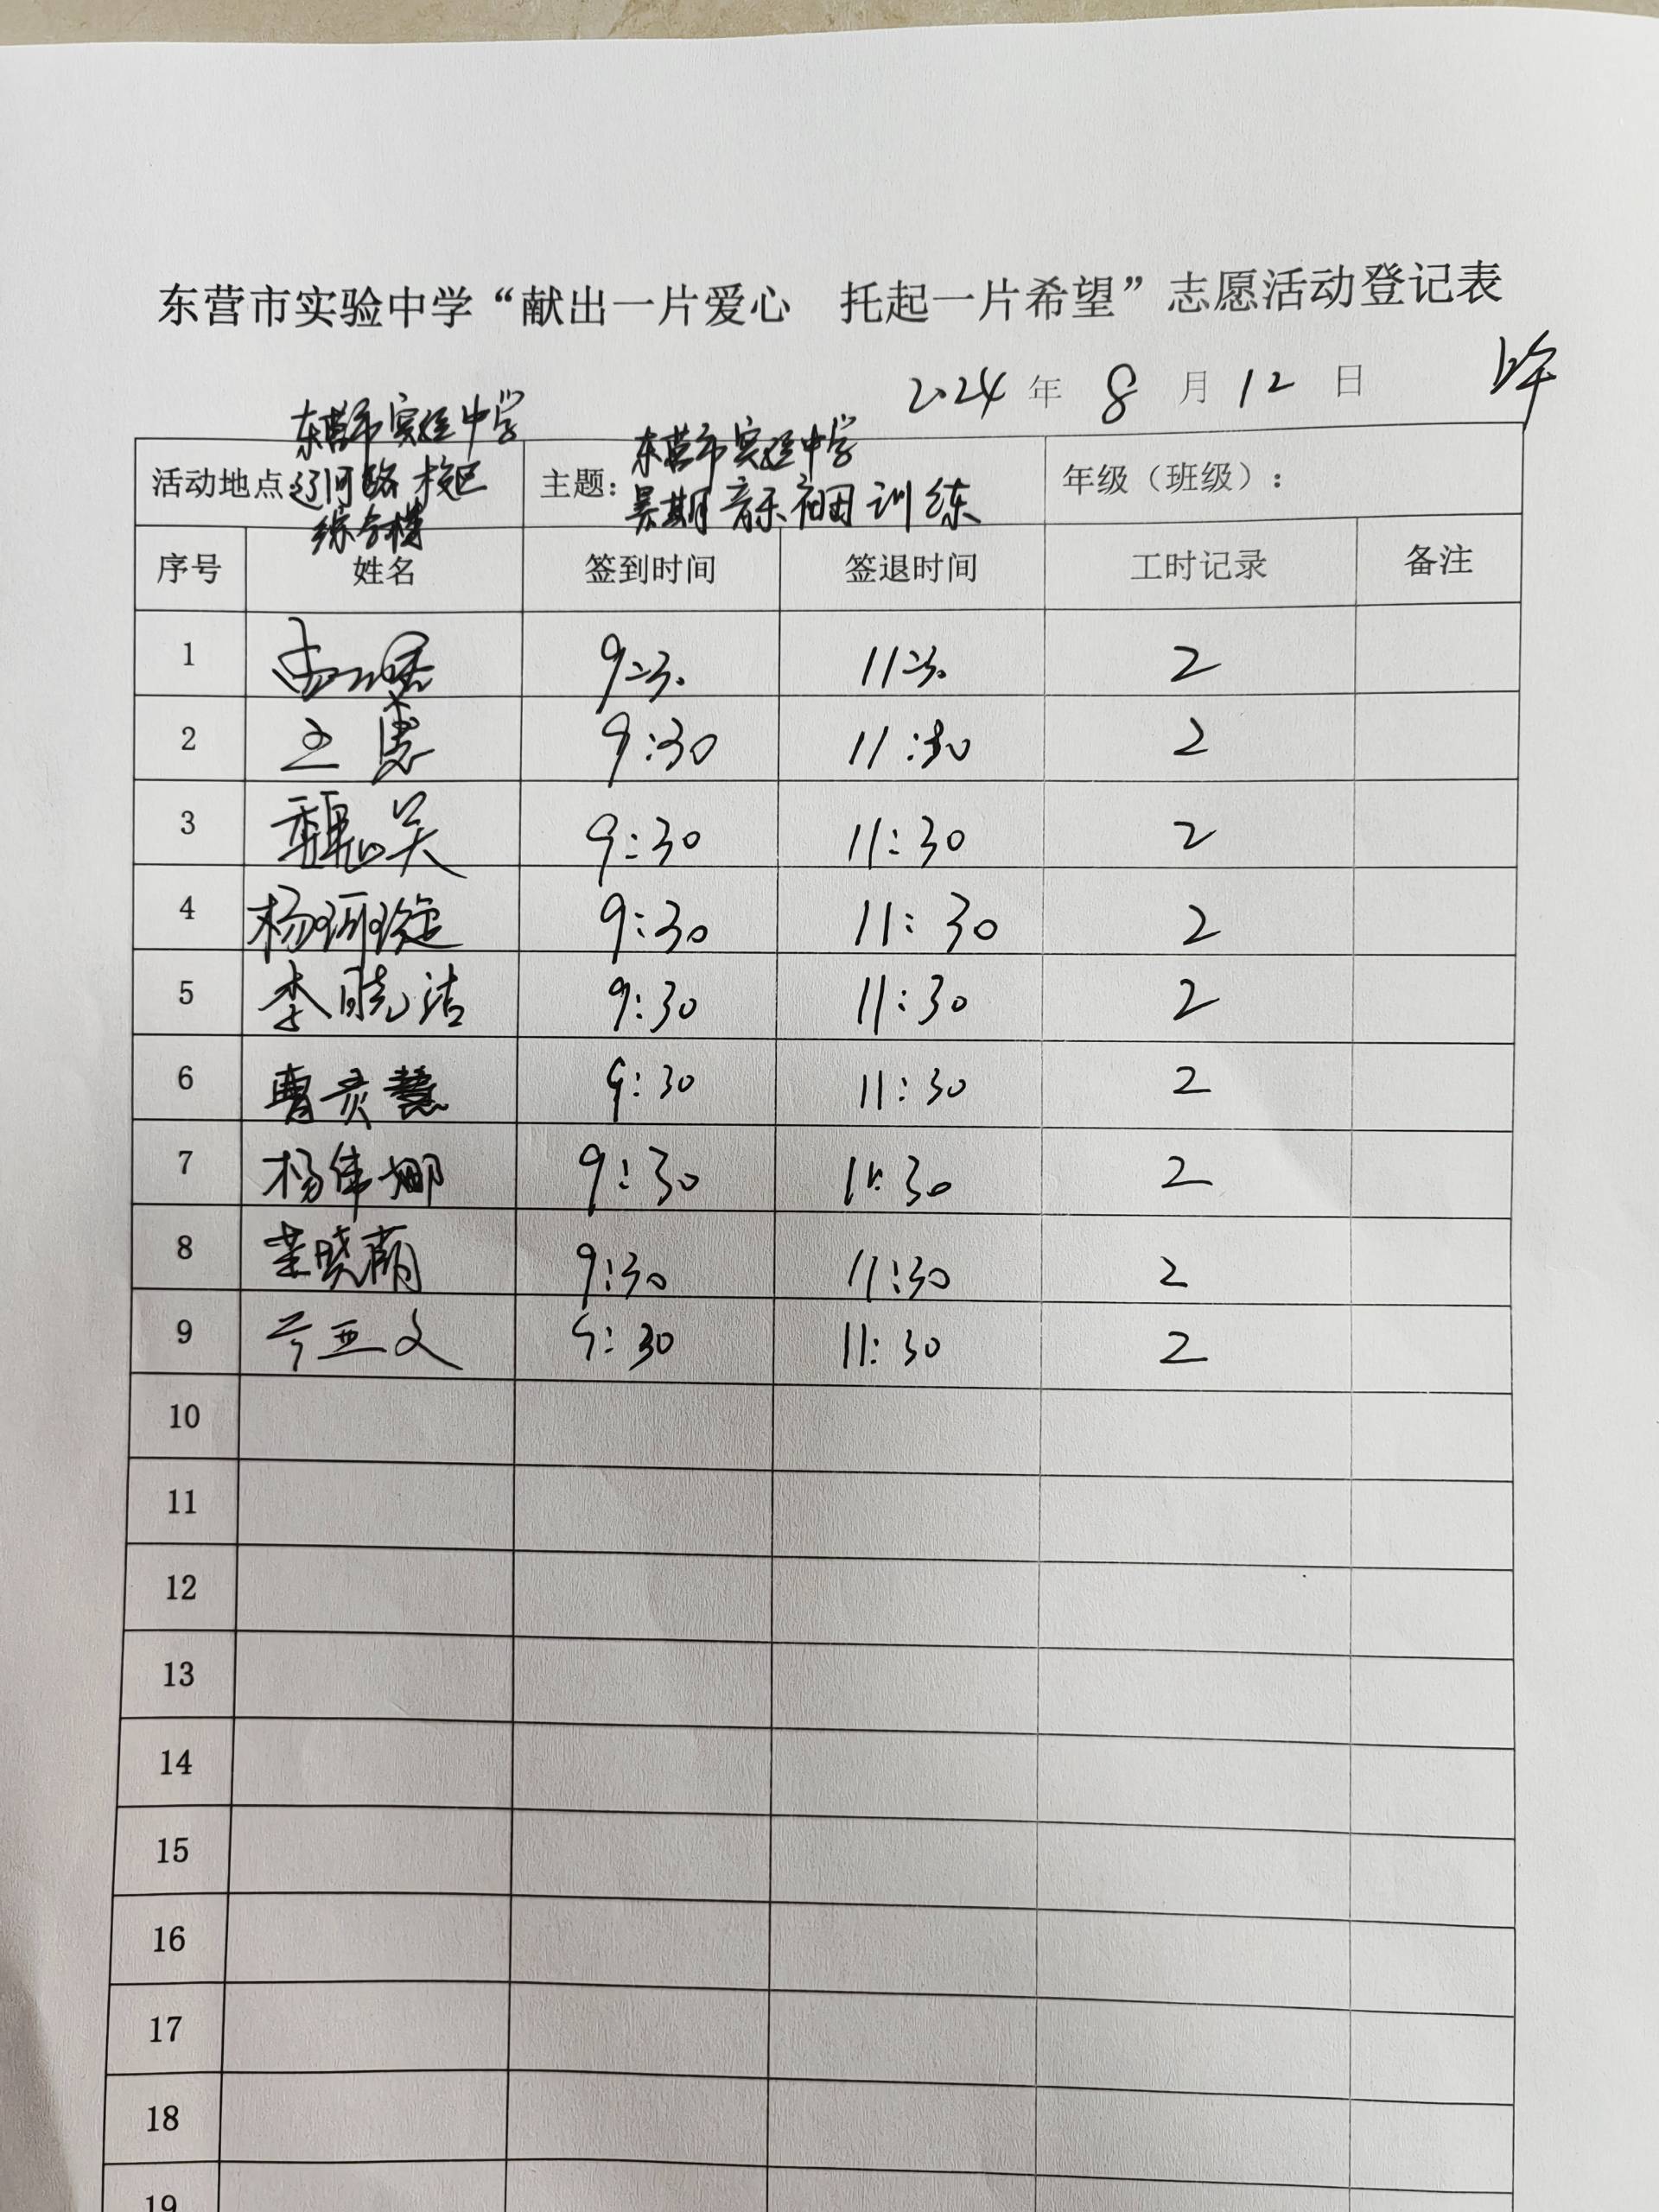 东营市实验中学“献出一片爱心 托起一片希望”志愿活动登记表
2024 年 8 月 12 日 上午
活动地点 东营市实验中学
辽河路校区
综合楼
主题: 东营市实验中学
暑期音乐社团训练
年级（班级）:
序号 姓名 签到时间 签退时间 工时记录 备注
1 9:30 11:30 2
2 王惠 9:30 11:30 2
3 魏心昊 9:30 11:30 2
4 杨 9:30 11:30 2
5 李晓洁 9:30 11:30 2
6 曹灵慧 9:30 11:30 2
7 杨伟娜 9:30 11:30 2
8 晓萌 9:30 11:30 2
9 亚文 9:30 11:30 2
10
11
12
13
14
15
16
17
18
19